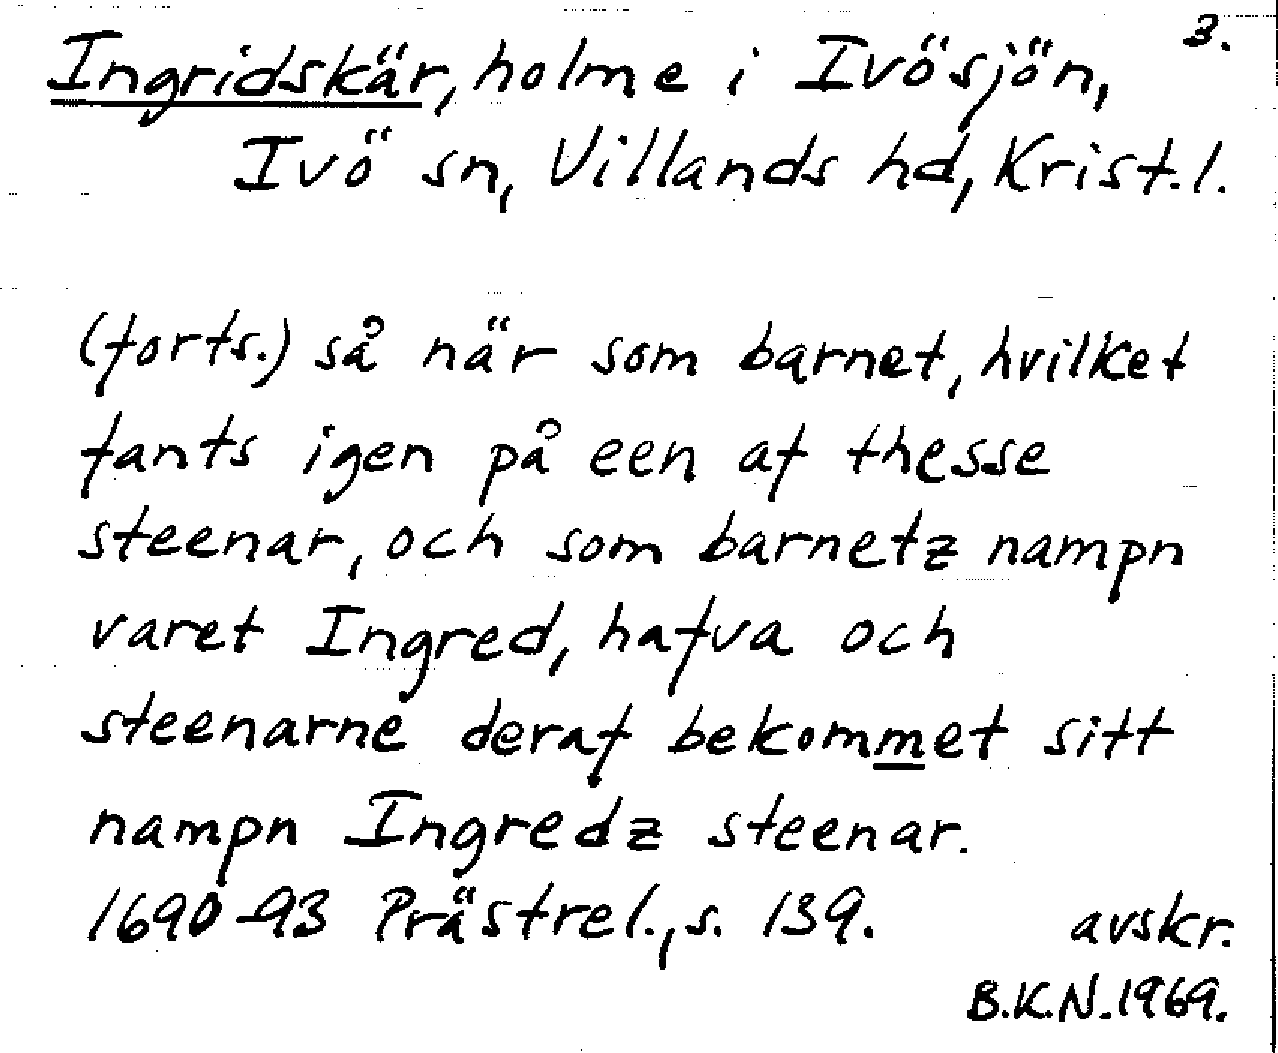 3.
Ingridskär, holme i Ivösjön,
Ivö sn, Villands hd, Krist. l.
(forts.) så när som barnet, hvilket
fants igen på een af thesse
steenar, och som barnetz nampn
varet Ingred, hafva och
steenarne deraf bekommet sitt
nampn Ingredz steenar.
1690-93 Prästrel., s. 139.
avskr.
B.K.N. 1969.